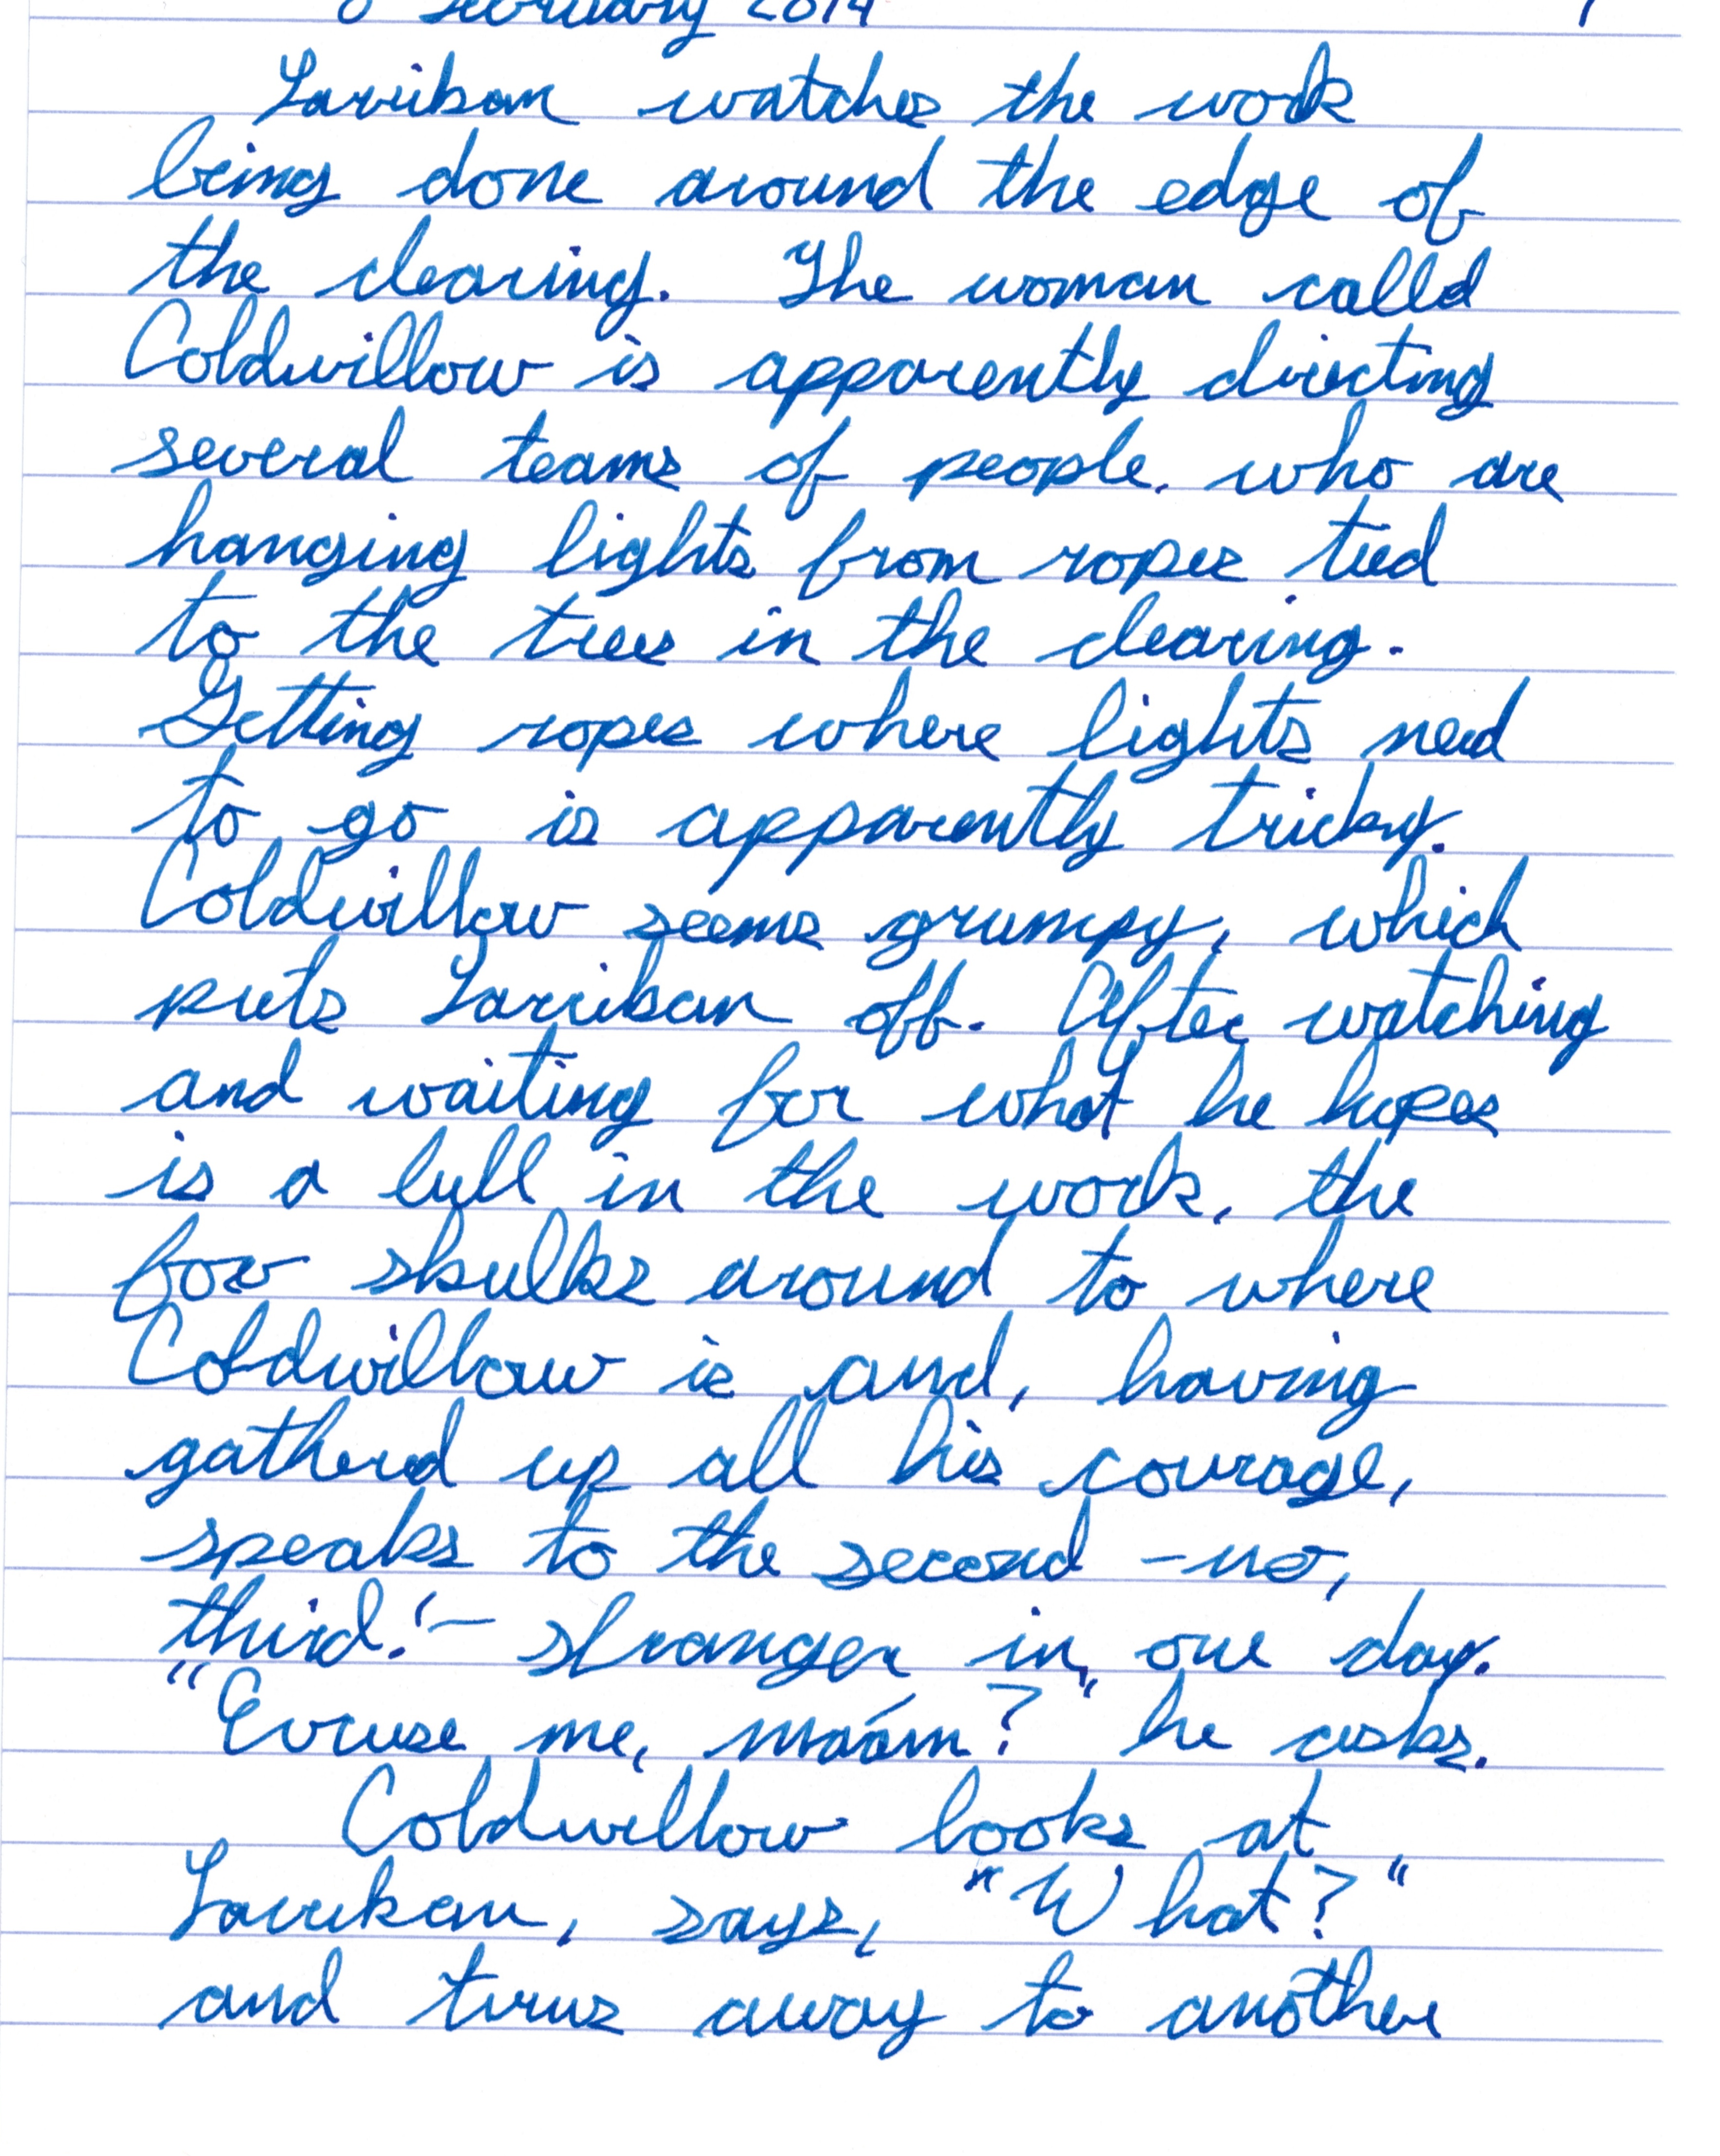 February 2014 1
Larrikan watches the work
being done around the edge of
the clearing. The woman called
Coldwillow is apparently directing
several teams of people, who are
hanging lights from ropes tied
to the trees in the clearing.
Getting ropes where lights need
to go is apparently tricky.
Coldwillow seems grumpy, which
puts Larrikan off. After watching
and waiting for what he hopes
is a lull in the work, the
fox skulks around to where
Coldwillow is and, having
gathered up all his courage,
speaks to the second – no,
third! – stranger in one day.
"Excuse me, ma'am?" he asks.
Coldwillow looks at
Larrikan, says, "What?"
and turns away to another